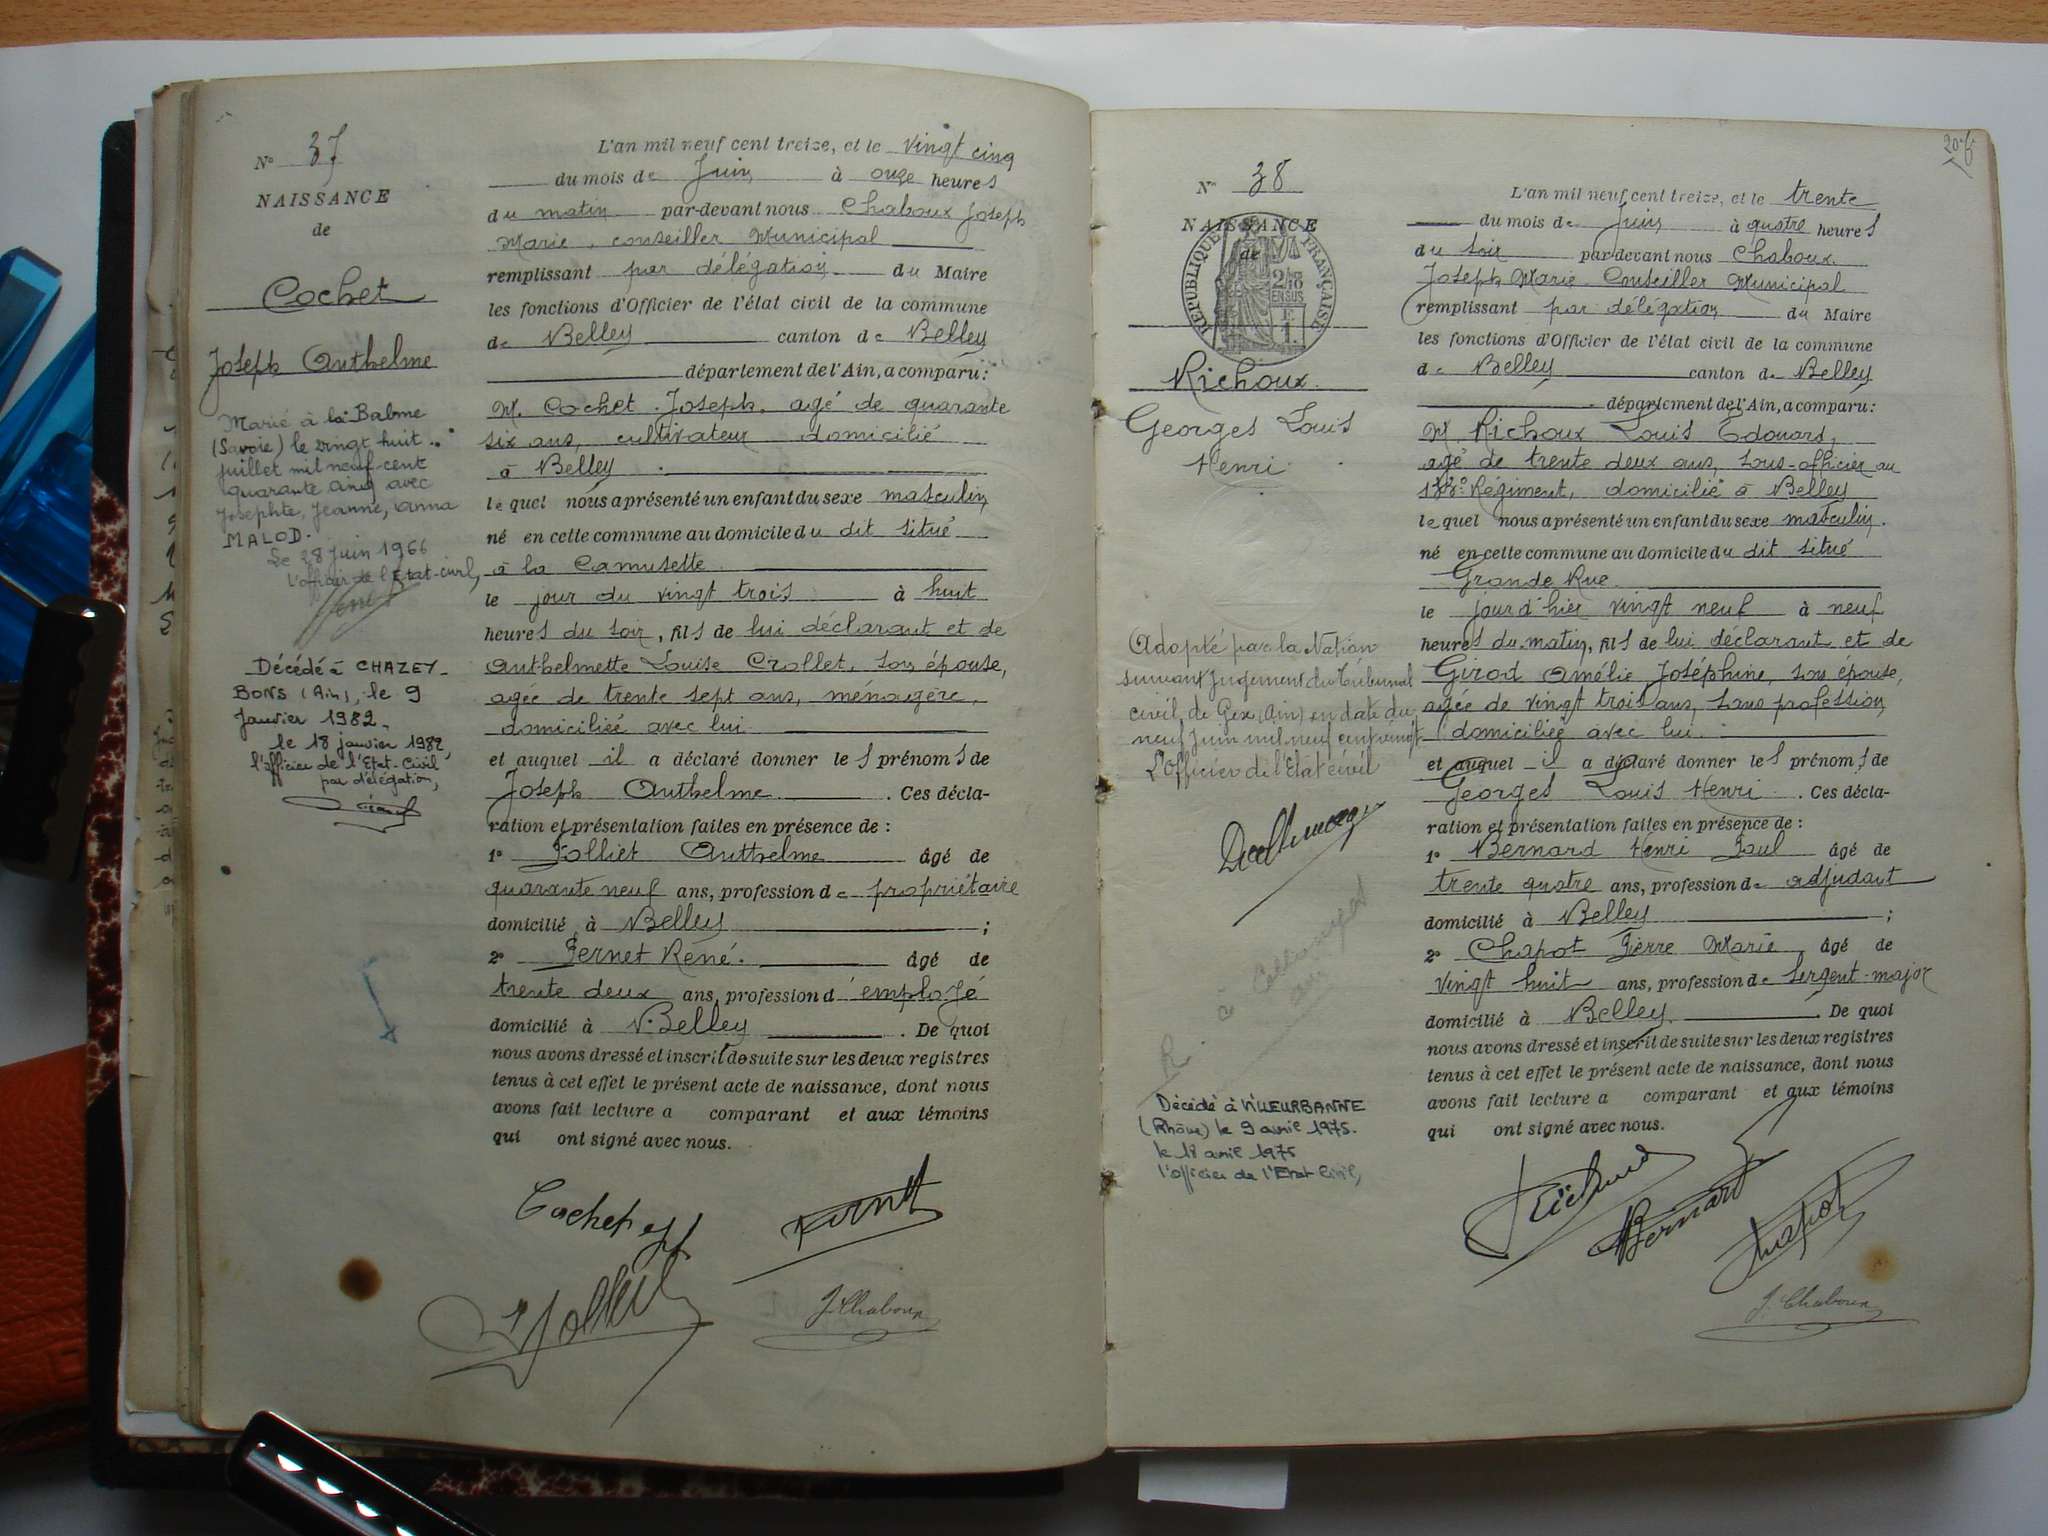 N° 37
NAISSANCE
de
Cochet
Joseph Anthelme
Marié à la Balme
(Savoie) le vingt huit
juillet mil neuf cent
quarante cinq avec
Josephte, Jeanne, Anna
MALOD.
Le 28 juin 1966
L'officier de l'Etat-civil,
Décédé à CHAZEY-
BONS (Ain), le 9
Janvier 1982.
le 18 janvier 1982,
l'officier de l'Etat-Civil
par délégation,
L'an mil neuf cent treize, et le vingt cinq
du mois de Juin à onze heures
du matin par-devant nous Chaboux Joseph
Marie, conseiller Municipal
remplissant par délégation du Maire
les fonctions d'Officier de l'état civil de la commune
de Belley canton de Belley
département de l'Ain, a comparu:
M. Cochet Joseph, agé de quarante
six ans, cultivateur domicilié
à Belley
le quel nous a présenté un enfant du sexe masculin
né en cette commune au domicile du dit situé
à la Camusette
le jour du vingt trois à huit
heures du soir, fils de lui déclarant et de
Anthelmette Louise Crollet, son épouse,
agée de trente sept ans, ménagère,
domiciliée avec lui
et auquel il a déclaré donner le s prénom s de
Joseph Anthelme . Ces décla-
ration et présentation faites en présence de :
1° Jolliet Anthelme âgé de
quarante neuf ans, profession de propriétaire
domicilié à Belley ;
2° Fernet René. âgé de
trente deux ans, profession d'employé
domicilié à Belley . De quoi
nous avons dressé et inscrit de suite sur les deux registres
tenus à cet effet le présent acte de naissance, dont nous
avons fait lecture a comparant et aux témoins
qui ont signé avec nous.
Cochet
Fernet
Jolliet
J. Chaboux
N° 38
NAISSANCE
de
RÉPUBLIQUE FRANÇAISE
Richoux
Georges Louis
Henri
Adopté par la Nation
suivant jugement du Tribunal
civil de Gex (Ain) en date du
neuf juin mil neuf cent vingt
L'Officier de l'Etat civil
R. à Collonges
Décédé à VILLEURBANNE
(Rhône) le 9 avril 1975.
le 18 avril 1975
l'officier de l'Etat Civil,
L'an mil neuf cent treize, et le trente
du mois de Juin à quatre heures
du soir par devant nous Chaboux
Joseph Marie Conseiller Municipal
remplissant par délégation du Maire
les fonctions d'Officier de l'état civil de la commune
de Belley canton de Belley
département de l'Ain, a comparu:
M. Richoux Louis Edouard,
agé de trente deux ans, sous-officier au
133e Régiment, domicilié à Belley
le quel nous a présenté un enfant du sexe masculin.
né en cette commune au domicile du dit situé
Grande Rue
le jour d'hier vingt neuf à neuf
heures du matin, fils de lui déclarant et de
Girod Amélie Joséphine, son épouse,
agée de vingt trois ans, sans profession
domiciliée avec lui.
et auquel il a déclaré donner le s prénom s de
Georges Louis Henri . Ces décla-
ration et présentation faites en présence de :
1° Bernard Henri Paul âgé de
trente quatre ans, profession de adjudant
domicilié à Belley ;
2° Chapot Pierre Marie âgé de
vingt huit ans, profession de Sergent-major
domicilié à Belley . De quoi
nous avons dressé et inscrit de suite sur les deux registres
tenus à cet effet le présent acte de naissance, dont nous
avons fait lecture a comparant et aux témoins
qui ont signé avec nous.
Richoux
Bernard
Chapot
J. Chaboux